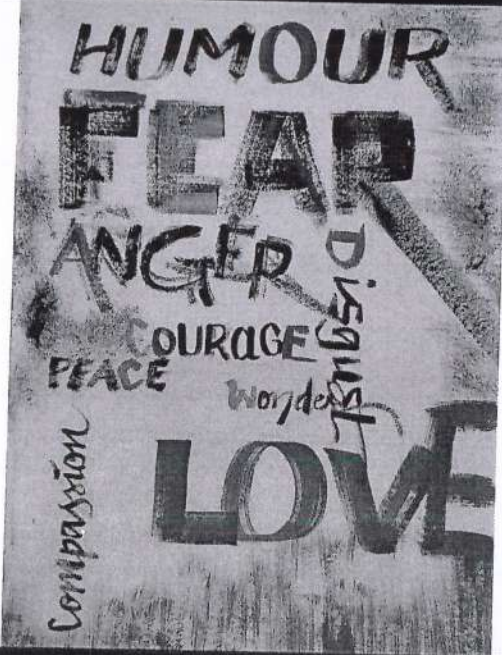 HUMOUR
FEAR
ANGER
Disgust
COURAGE
PEACE
Wonder
LOVE
Compassion